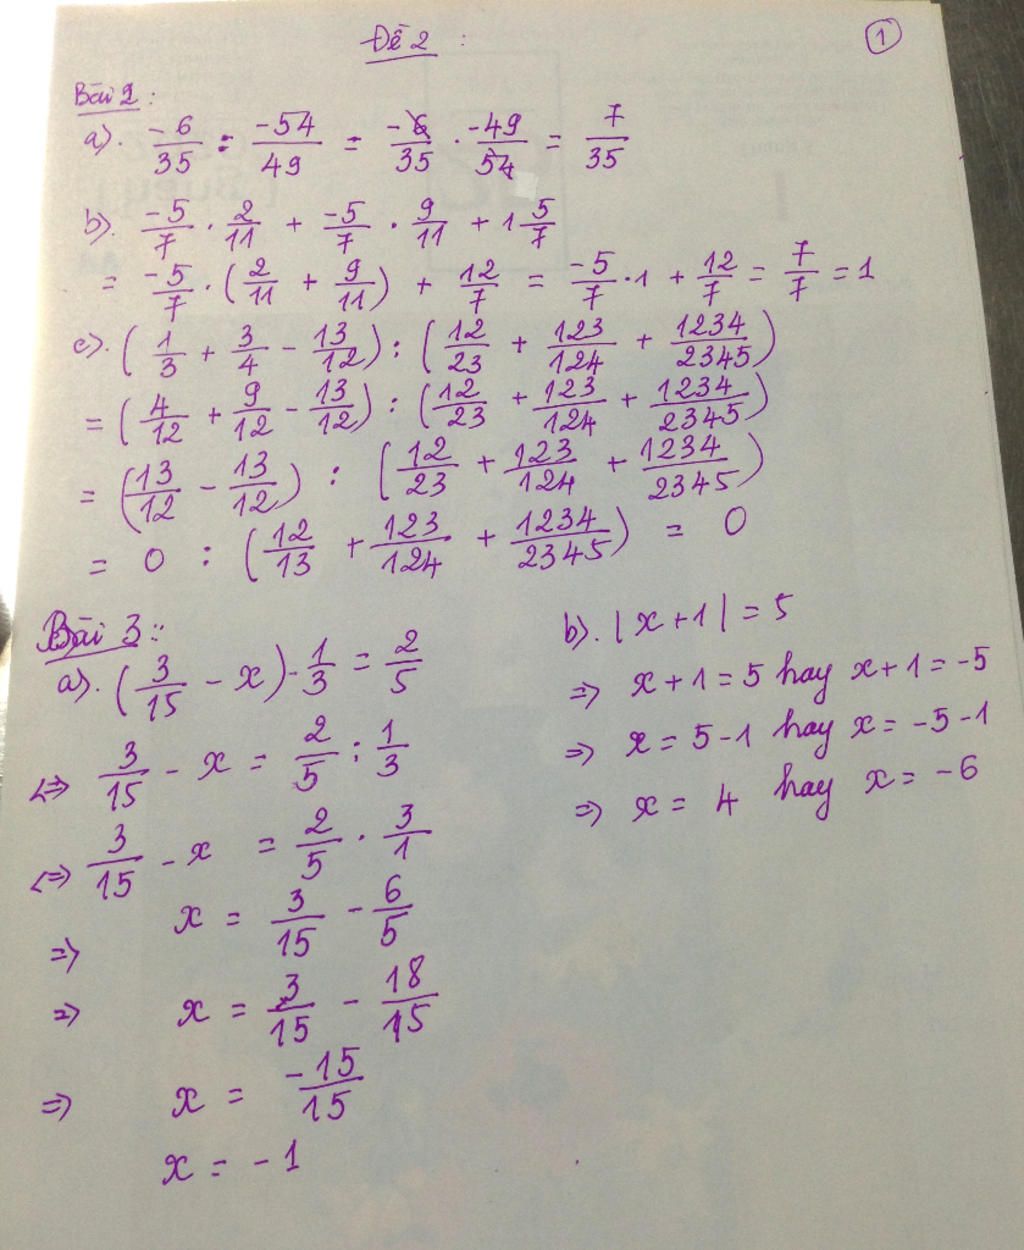 Đề 2 :
1
Bài 2 :
a). -6/35 : -54/49 = -6/35 . -49/54 = 7/35
b). -5/7 . 2/11 + -5/7 . 9/11 + 1 5/7
= -5/7 . (2/11 + 9/11) + 12/7 = -5/7 . 1 + 12/7 = 7/7 = 1
c). (1/3 + 3/4 - 13/12) : (12/23 + 123/124 + 1234/2345)
= (4/12 + 9/12 - 13/12) : (12/23 + 123/124 + 1234/2345)
= (13/12 - 13/12) : (12/23 + 123/124 + 1234/2345)
= 0 : (12/13 + 123/124 + 1234/2345) = 0
Bài 3 :
a). (3/15 - x) . 1/3 = 2/5
<=> 3/15 - x = 2/5 : 1/3
<=> 3/15 - x = 2/5 . 3/1
=> x = 3/15 - 6/5
=> x = 3/15 - 18/15
=> x = -15/15
x = -1
b). |x+1| = 5
=> x+1 = 5 hay x+1 = -5
=> x = 5-1 hay x = -5-1
=> x = 4 hay x = -6